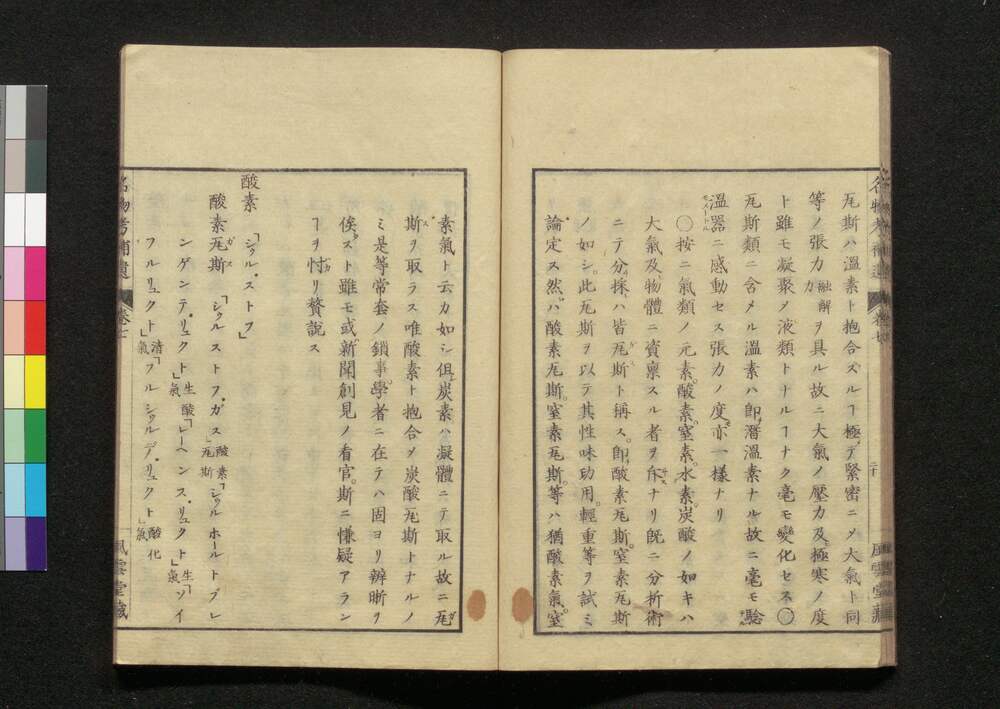 瓦斯ハ溫素ト抱合スルヿ極テ緊密ニメ大氣ト同
等ノ張力融觧力ヲ具ル故ニ大氣ノ壓力及極寒ノ度
ト雖モ凝聚メ液類トナルヿナク毫モ變化セス〇
瓦斯類ニ含メル溫素ハ卽潛溫素ナル故ニ毫モ驗
溫器ニ感動セス張力ノ度亦一様ナリ
〇按ニ氣類ノ元素酸素。窒素。水素。炭酸ノ如キハ
大氣及物體ニ資稟スル者ヲ斥ナリ既ニ分析術
ニテ分採ハ皆瓦斯ト稱ス。卽酸素瓦斯。窒素瓦斯
ノ如シ。此瓦斯ヲ以テ其性味功用。輕重等ヲ試ミ
論定ス然ハ酸素瓦斯。窒素瓦斯。等ハ猶酸素氣。窒
素氣ト云カ如シ但炭素ハ凝體ニテ取ル故ニ瓦
斯ヲ取ラス唯酸素ト抱合メ炭酸瓦斯トナルノ
ミ是等常套ノ鎖事學者ニ在テハ固ヨリ辨晰ヲ
俟スト雖モ或新聞創見ノ看官。斯ニ慊疑アラン
ヿヲ忖リ贅說ス
酸素 「シュル、ストフ」
酸素瓦斯 「シュルストフ、ガス」酸素瓦斯「シュルホールトブレ
ンゲンテ、リュクト」生酸氣「レーヘンス、リュクト」生氣「ソイ
フルリュクト」清氣「フルシュルデ、リュクト」酸化氣
名物考補遺 卷七 風雲堂藏